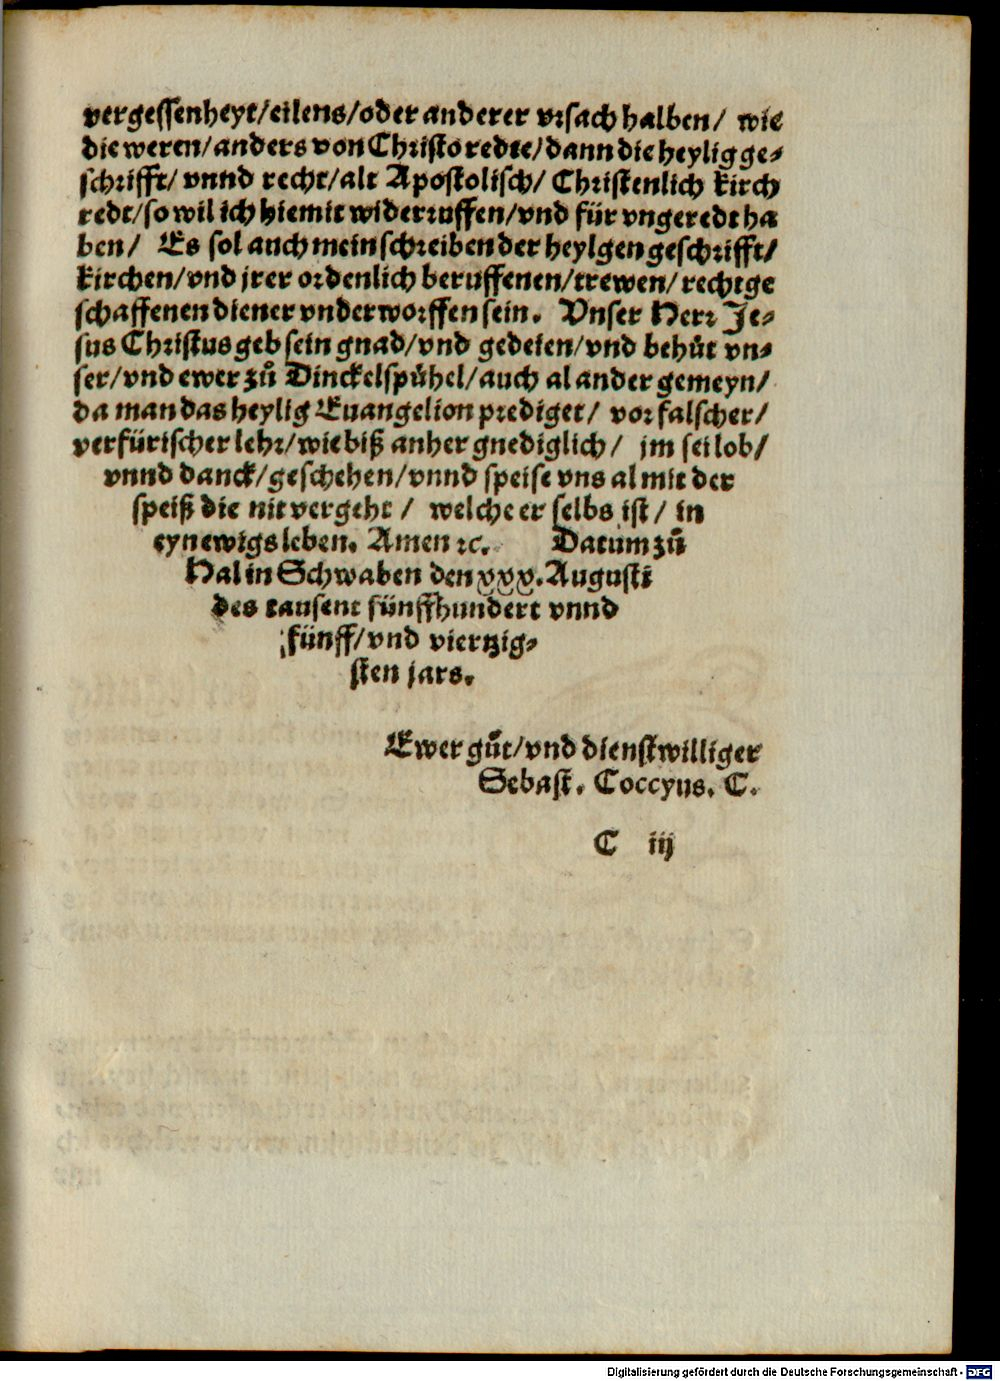 vergessenheyt/eilens/oder anderer vrsach halben/ wie
die weren/anders von Christo redte/dann die heylig ge-
schrifft/ vnnd recht/alt Apostolisch/ Christenlich kirch
redt/so wil ich hiemit widerruffen/vnd für vngeredt ha
ben/ Es sol auch mein schreiben der heylgen geschrifft/
kirchen/vnd jrer ordenlich beruffenen/trewen/rechtge
schaffenen diener vnderworffen sein. Vnser Herr Je-
sus Christus geb sein gnad/vnd gedeien/vnd behůt vn-
ser/vnd ewer zů Dinckelspůhel/auch al ander gemeyn/
da man das heylig Euangelion prediget/ vor falscher/
verfürischer lehr/wie biß anher gnediglich/ jm sei lob/
vnnd danck/geschehen/vnnd speise vns al mit der
speiß die nit vergeht/ welche er selbs ist/ in
eyn ewigs leben. Amen ꝛc. Datum zů
Hal in Schwaben den xxx. Augusti
des tausent fünffhundert vnnd
fünff/vnd viertzig-
sten jars.
Ewer gůt/vnd dienstwilliger
Sebast. Coccyus. C.
C iij
Digitalisierung gefördert durch die Deutsche Forschungsgemeinschaft - DFG